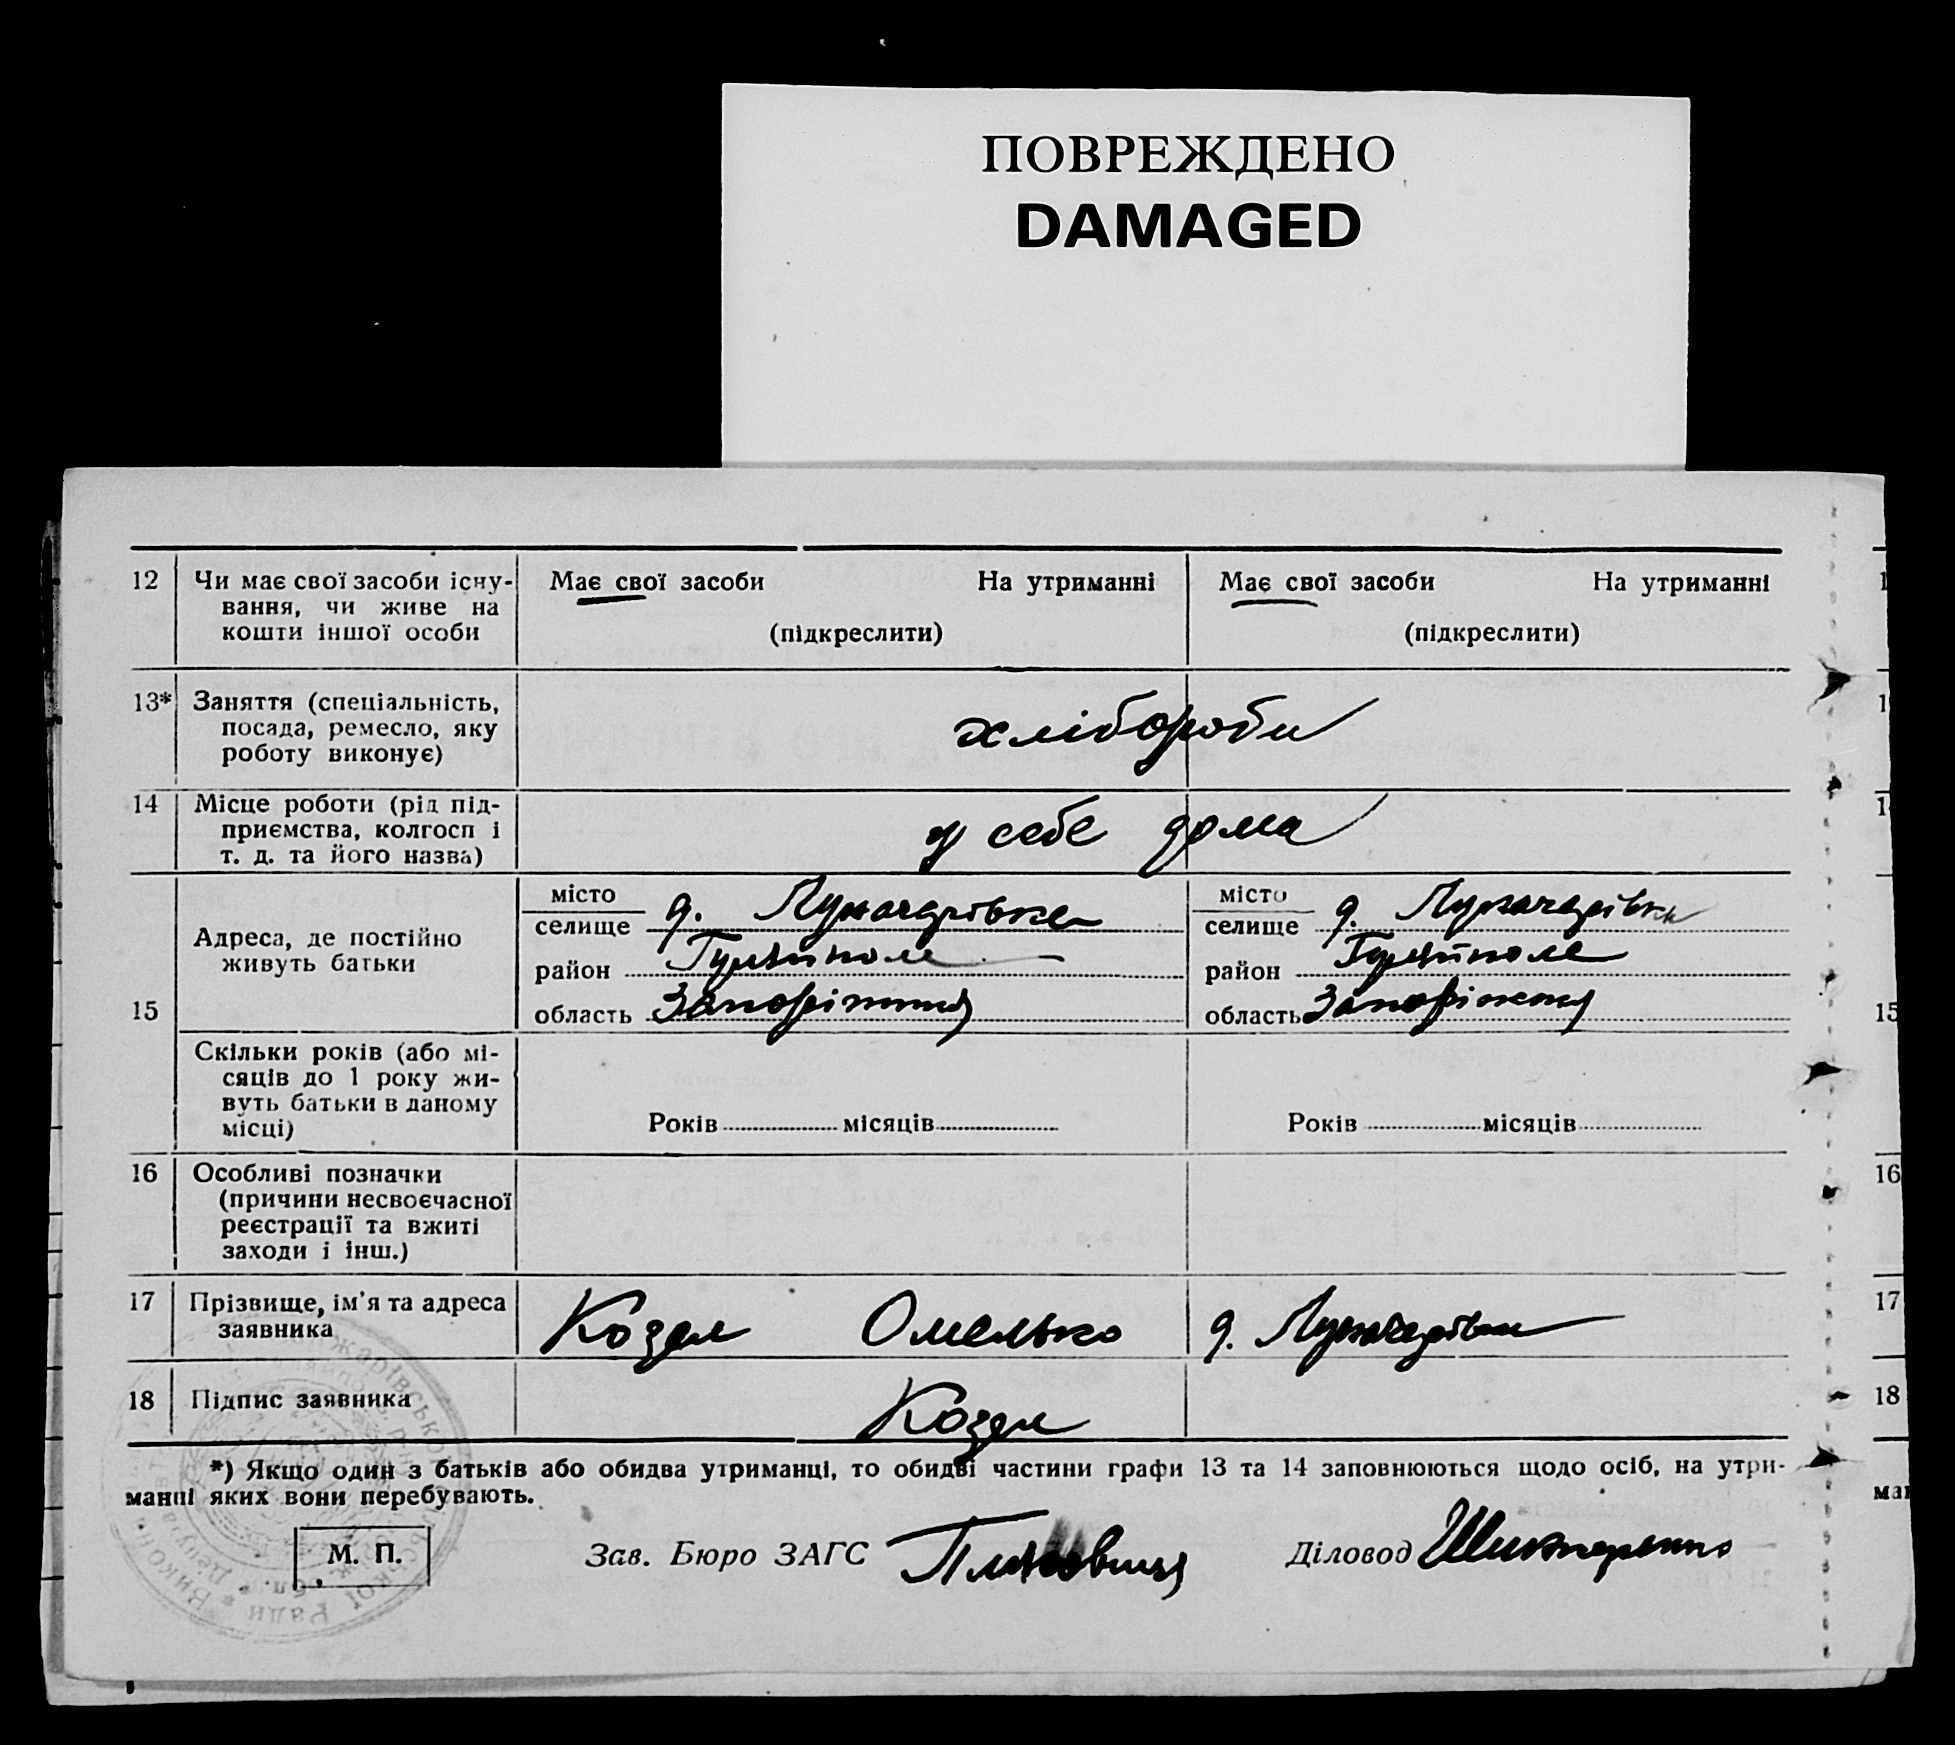 ПОВРЕЖДЕНО
DAMAGED
12 Чи має свої засоби існу- Має свої засоби На утриманні Має свої засоби На утриманні
вання, чи живе на
кошти іншої особи (підкреслити) (підкреслити)
13* Заняття (спеціальність,
посада, ремесло, яку хлібороби
роботу виконує)
14 Місце роботи (рід під-
приємства, колгосп і у себе дома
т. д. та його назва)
15 Адреса, де постійно
живуть батьки
місто
селище д. Луначарівка
район
область
місто
селище д. Луначарівка
район
область
Скільки років (або мі-
сяців до 1 року жи-
вуть батьки в даному
місці) Років місяців Років місяців
16 Особливі позначки
(причини несвоєчасної
реєстрації та вжиті
заходи і інш.)
17 Прізвище, ім'я та адреса
заявника Козел Омелько д. Луначарівка
18 Підпис заявника Козел
*) Якщо один з батьків або обидва утриманці, то обидві частини графи 13 та 14 заповнюються щодо осіб, на утри-
манні яких вони перебувають.
М. П. Зав. Бюро ЗАГС Діловод
15
16
17
18